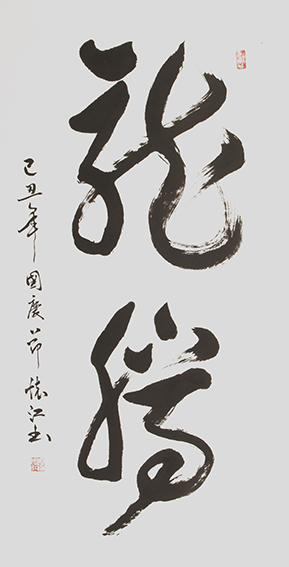 龍騰
己丑年國慶节懷江书